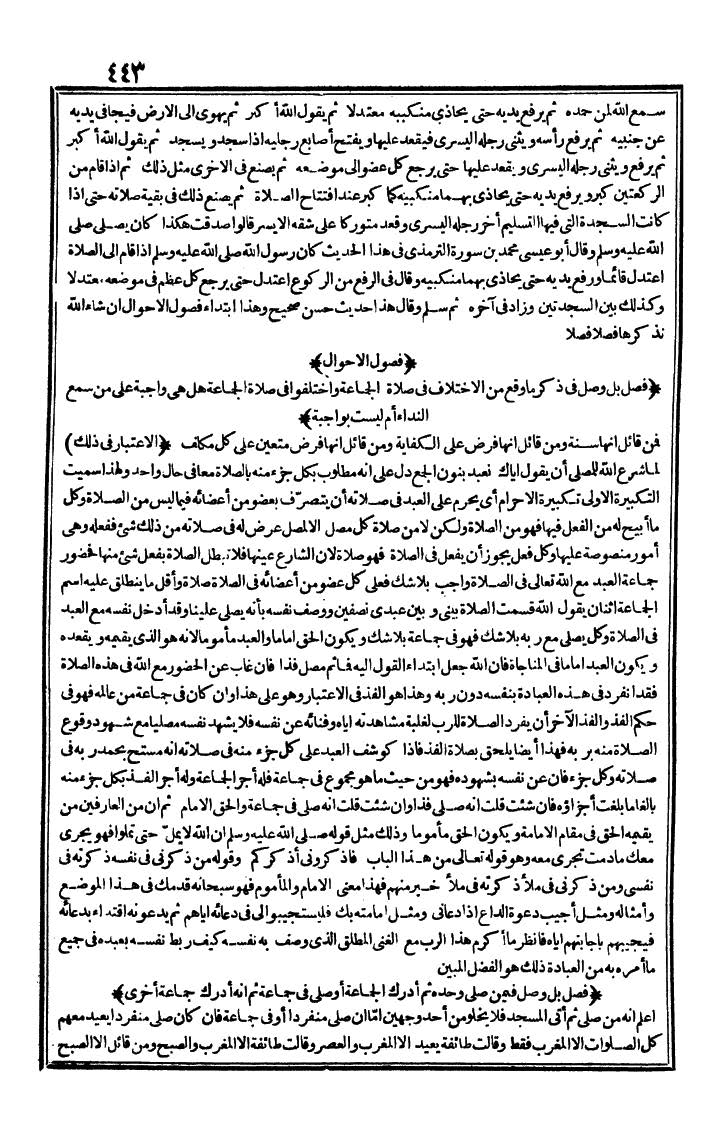 ٤٤٣
سمع الله لمن حمده ثم يرفع يديه حتى يحاذي منكبيه معتدلا ثم يقول الله أكبر ثم يهوى الى الارض فيجافى يديه
عن جنبيه ثم يرفع رأسه ويثنى رجله اليسرى فيقعد عليها ويفتح أصابع رجليه اذا سجد ويسجد ثم يقول الله أكبر
ثم يرفع ويثنى رجله اليسرى ويقعد عليها حتى يرجع كل عضو الى موضعه ثم يصنع فى الاخرى مثل ذلك ثم اذا قام من
الركعتين كبر ويرفع يديه حتى يحاذى بهما منكبيه كما كبر عند افتتاح الصلاة ثم يصنع ذلك فى بقية صلاته حتى اذا
كانت السجدة التى فيها التسليم أخر رجله اليسرى وقعد متوركا على شقه الايسر قالوا صدقت هكذا كان يصلى صلى
الله عليه وسلم وقال أبو عيسى محمد بن سورة الترمذى فى هذا الحديث كان رسول الله صلى الله عليه وسلم اذا قام الى الصلاة
اعتدل قائما ورفع يديه حتى يحاذى بهما منكبيه وقال فى الرفع من الركوع اعتدل حتى يرجع كل عظم فى موضعه معتدلا
وكذلك بين السجدتين وزاد فى آخره ثم سلم وقال هذا حديث حسن صحيح وهذا ابتداء فصول الاحوال ان شاء الله
نذكرها فصلا فصلا
﴿فصول الاحوال﴾
﴿فصل بل وصل فى ذكر ما وقع من الاختلاف فى صلاة الجماعة واختلفوا فى صلاة الجماعة هل هى واجبة على من سمع
النداء أم ليست بواجبة﴾
فمن قائل انها سنة ومن قائل انها فرض على الكفاية ومن قائل انها فرض متعين على كل مكلف ﴿الاعتبار فى ذلك﴾
لما شرع الله للمصلى أن يقول اياك نعبد بنون الجمع دل على انه مطلوب بكل جزء منه بالصلاة معا فى حال واحد ولهذا سميت
التكبيرة الاولى تكبيرة الاحرام أى يحرم على العبد فى صلاته أن يتصرف بعضو من أعضائه فيما ليس من الصلاة وكل
ما أبيح له من الفعل فيها فهو من الصلاة ولكن لا من صلاة كل مصل الا لمصل عرض له فى صلاته من ذلك شئ ففعله وهى
أمور منصوصة عليها وكل فعل يجوز أن يفعل فى الصلاة فهو صلاة لان الشارع عينها فلا تبطل الصلاة بفعل شئ منها فحضور
جماعة العبد مع الله تعالى فى الصلاة واجب بلا شك فعلى كل عضو من أعضائه فى الصلاة صلاة وأقل ما ينطلق عليه اسم
الجماعة اثنان يقول الله قسمت الصلاة بينى وبين عبدى نصفين ووصف نفسه بأنه يصلى علينا وقد أدخل نفسه مع العبد
فى الصلاة وكل يصلى مع ربه بلا شك فهو فى جماعة بلا شك ويكون الحق اماما والعبد مأموما لانه هو الذى يقيمه ويقعده
ويكون العبد اماما فى المناجاة فان الله جعل ابتداء القول اليه فما ثم مصل فذا فان غاب عن الحضور مع الله فى هذه الصلاة
فقد انفرد فى هذه العبادة بنفسه دون ربه وهذا هو الفذ فى الاعتبار وهو على هذا وان كان فى جماعة من عالمه فهو فى
حكم الفذ والفذ الآخر أن يفرد الصلاة للرب لغلبة مشاهدته اياه وفنائه عن نفسه فلا يشهد نفسه مصليا مع شهود وقوع
الصلاة منه بربه فهذا أيضا يلحق بصلاة الفذ فاذا كوشف العبد على كل جزء منه فى صلاته انه مسبح بحمد ربه فى
صلاته وكل جزء فان عن نفسه بشهوده فهو من حيث ما هو مجموع فى جماعة فله أجر الجماعة وله أجر الفذ بكل جزء منه
بالغا ما بلغت أجزاؤه فان شئت قلت انه صلى فذا وان شئت قلت انه صلى فى جماعة والحق الامام ثم ان من العارفين من
يقيمه الحق فى مقام الامامة ويكون الحق مأموما وذلك مثل قوله صلى الله عليه وسلم ان الله لا يمل حتى تملوا فهو يجرى
معك ما دمت تجرى معه وهو قوله تعالى من هذا الباب فاذكرونى أذكركم وقوله من ذكرنى فى نفسه ذكرته فى
نفسى ومن ذكرنى فى ملأ ذكرته فى ملأ خير منهم فهذا معنى الامام والمأموم فهو سبحانه قدمك فى هذا الموضع
وأمثاله ومثل أجيب دعوة الداع اذا دعانى ومثل امامته بك فليستجيبوا لى فى دعائه اياهم ثم يدعونه اقتداء بدعائه
فيجيبهم باجابتهم اياه فانظر ما أكرم هذا الرب مع الغنى المطلق الذى وصف به نفسه كيف ربط نفسه بعبده فى جميع
ما أمره به من العبادة ذلك هو الفضل المبين
﴿فصل بل وصل فيمن صلى وحده ثم أدرك الجماعة أو صلى فى جماعة ثم انه أدرك جماعة أخرى﴾
اعلم انه من صلى ثم أتى المسجد فلا يخلو من أحد وجهين اما ان صلى منفردا أو فى جماعة فان كان صلى منفردا يعيد معهم
كل الصلوات الا المغرب فقط وقالت طائفة يعيد الا المغرب والعصر وقالت طائفة الا المغرب والصبح ومن قائل الا الصبح